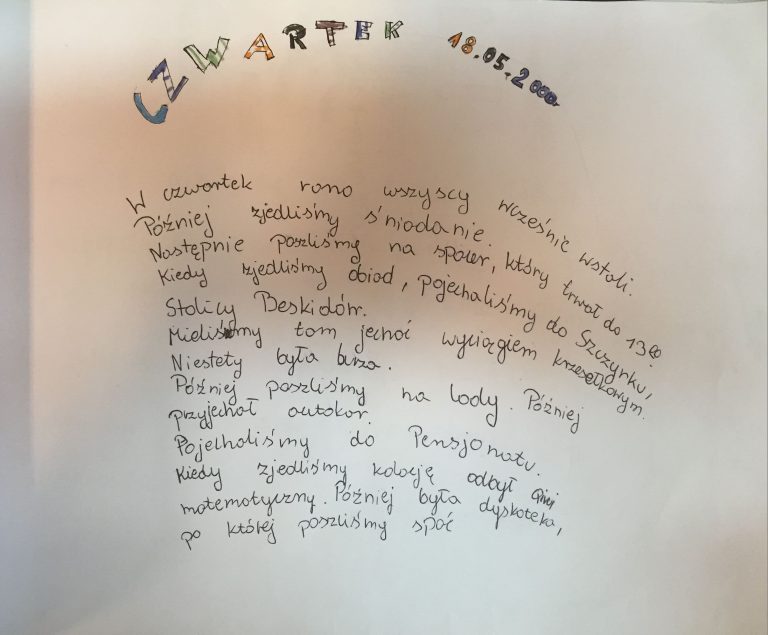 CZWARTEK 18.05.2000r.
W czwartek rano wszyscy wcześnie wstali.
Później zjedliśmy śniadanie.
Następnie poszliśmy na spacer, który trwał do 13⁰⁰.
Kiedy zjedliśmy obiad, pojechaliśmy do Szczyrku,
Stolicy Beskidów.
Mieliśmy tam jechać wyciągiem krzesełkowym.
Niestety była burza.
Później poszliśmy na lody. Później
przyjechał autokar.
Pojechaliśmy do Pensjonatu.
Kiedy zjedliśmy kolację odbył
matematyczny. Później była dyskoteka,
po której poszliśmy spać